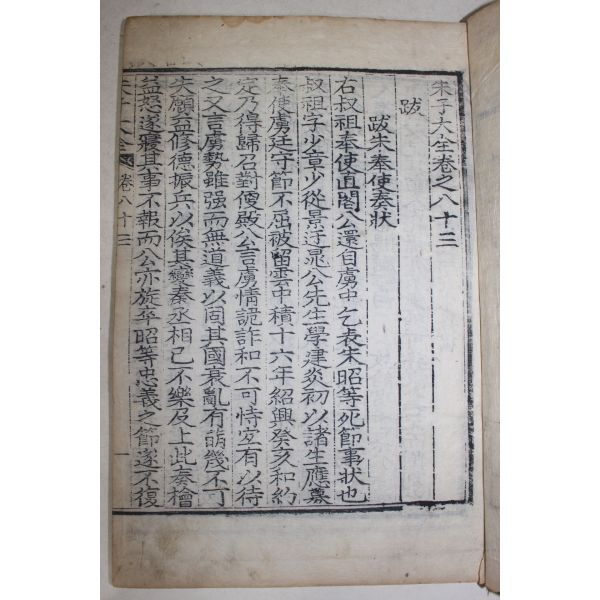 朱子大全卷之八十三
跋
跋朱奉使奏狀
右叔祖奉使直閣公還自虜中乞表朱昭等死節事狀也
叔祖字少章少從景迂晁公先生學建炎初以諸生應募
奉使虜廷守節不屈被留雲中積十六年紹興癸亥和約
定乃得歸召對便殿公言虜情詭詐和不可恃宜有以待
之又言虜勢雖强而無道義以固其國衰亂有萌幾不可
失願益修德振兵以俟其變秦丞相已不樂及上此奏檜
益怒遂寢其事不報而公亦旋卒昭等忠義之節遂不復
朱子大全 卷八十三 一